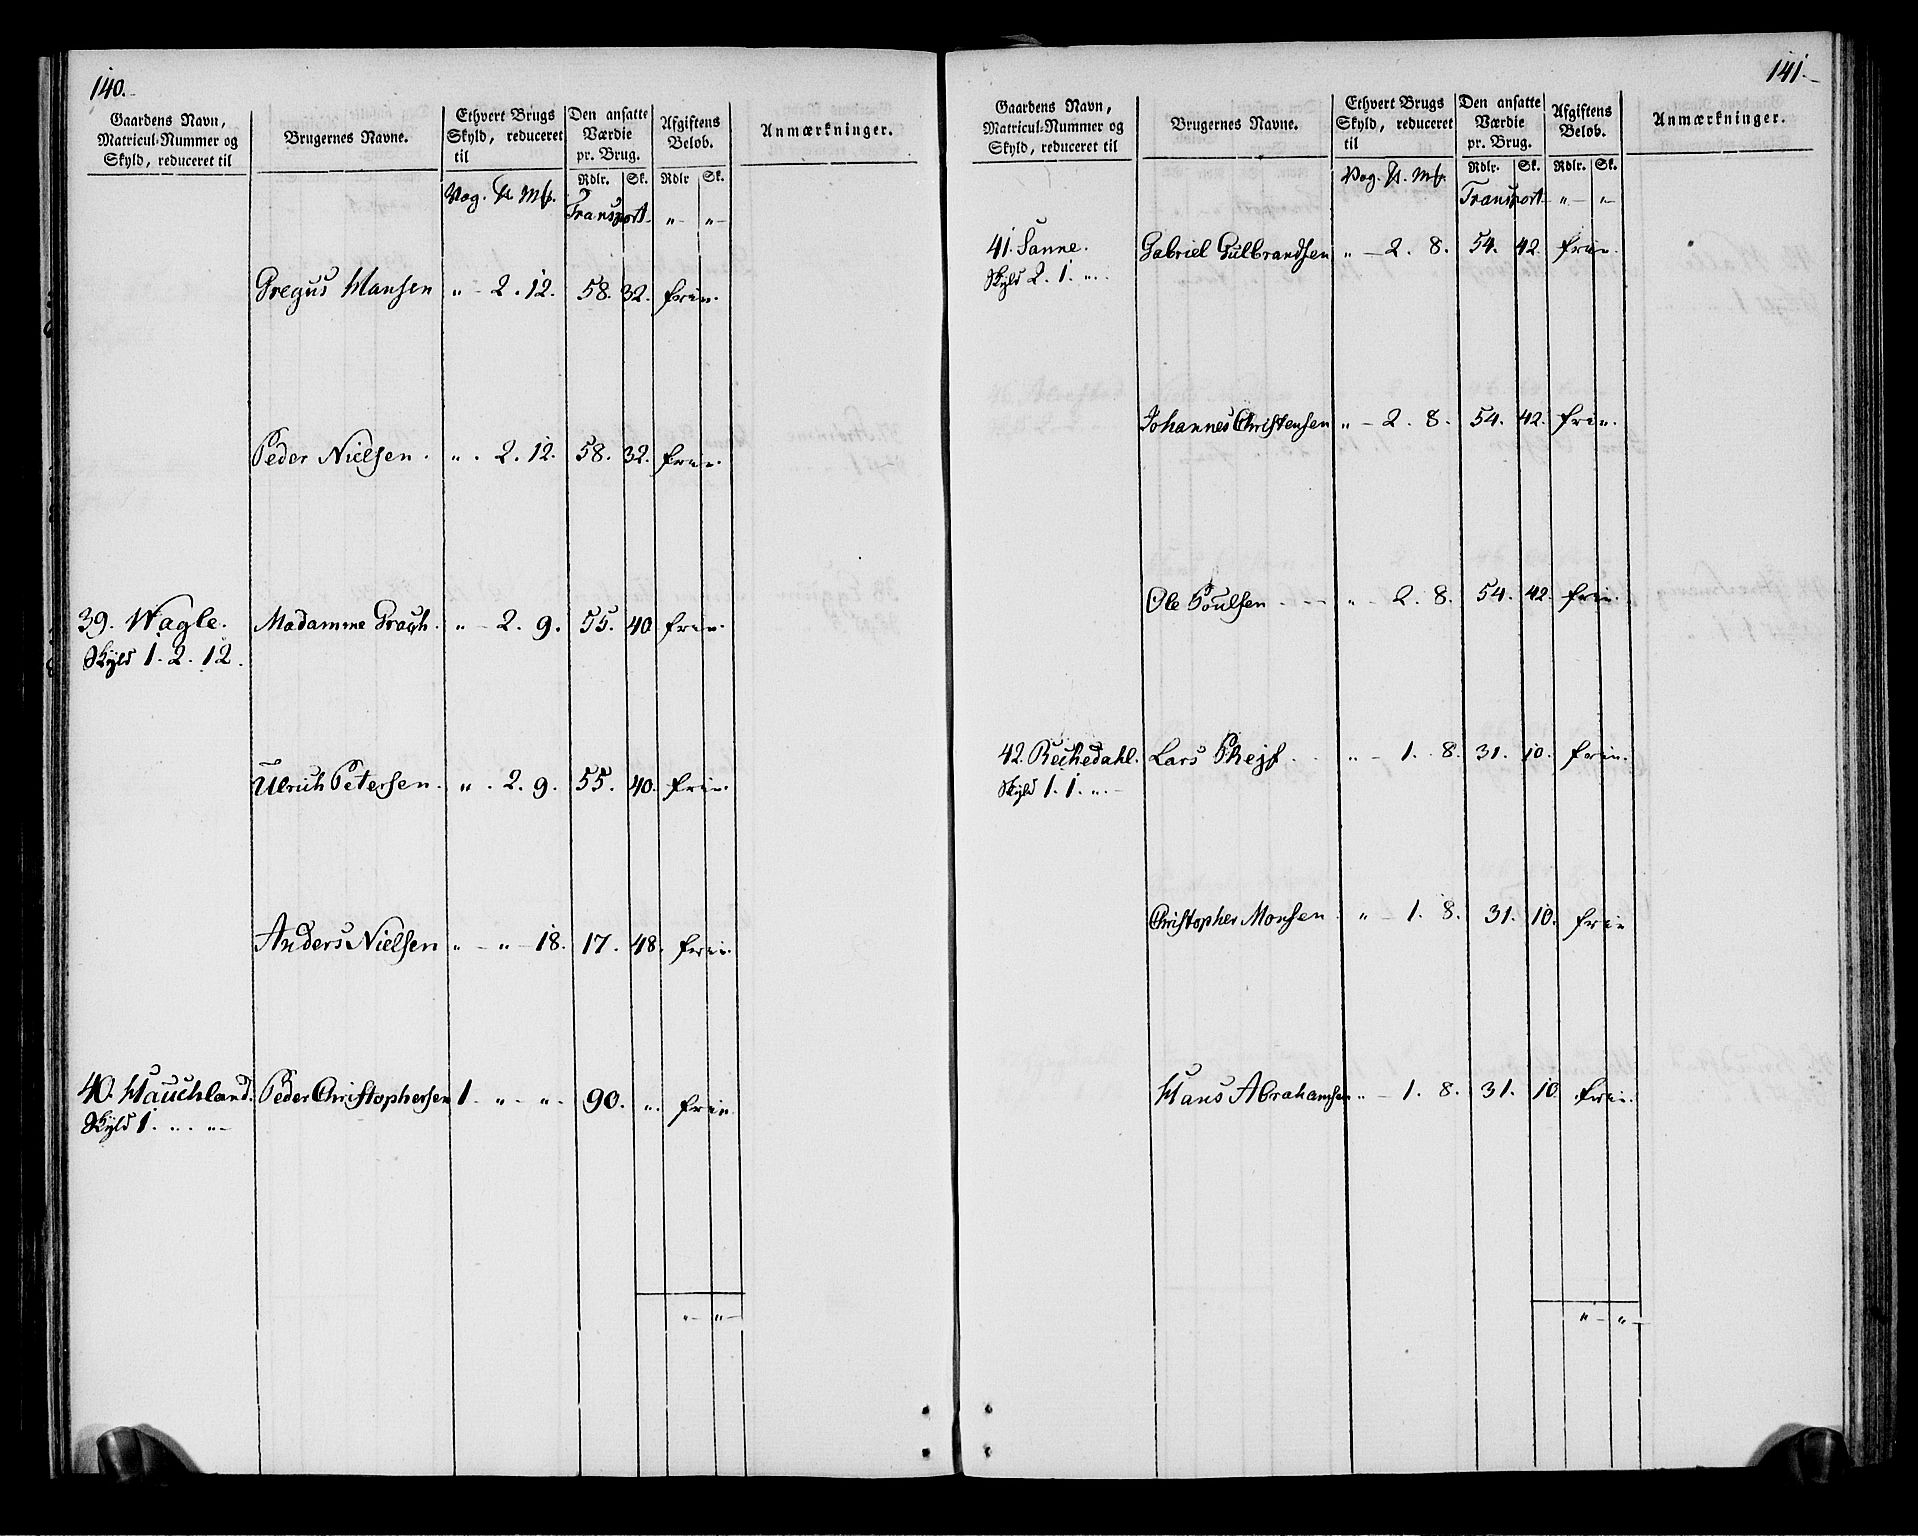 140.
Gaardens Navn, Matricul-Nummer og Skyld, reduceret til | Brugernes Navne. | Ethvert Brugs Skyld, reduceret til | Den ansatte Værdie pr. Brug. | Afgiftens Beløb. | Anmærkninger.
Vog. | Rdlr. | Sk. | Rdlr | Sk.
Transport „ „
Gregus Hansen „ 2. 12. 58. 32. frie.
Peder Nielsen. „ 2. 12. 58. 32. frie.
39. Wagle. Madamme „ 2. 9. 55. 40 frie.
Skyld 1. 2. 12.
Ulrich Petersen. „ 2. 9. 55. 40. frie.
Anders Nielsen „ „ 18. 17. 48. frie.
40. Hauchland. Peder Christophersen 1 „ „ 90. „ frie.
Skyld 1. „ „
„ „
141.
Gaardens Navn, Matricul-Nummer og Skyld, reduceret til | Brugernes Navne. | Ethvert Brugs Skyld, reduceret til | Den ansatte Værdie pr. Brug. | Afgiftens Beløb. | Anmærkninger.
Vog. | Rdlr. | Sk. | Rdlr. | Sk.
Transport „ „
41. Sanne. Gabriel Gulbrandsen „ 2. 8. 54. 42. frie.
Skyld 2. 1. „
Johannes Christensen „ 2. 8. 54. 42. frie.
Ole Poulsen „ 2. 8. 54. 42. frie.
42. Rechedahl. Lars „ 1. 8. 31. 10. frie.
Skyld 1. 1. „
Christopher Monsen „ 1. 8. 31. 10. frie
Hans Abrahamsen „ 1. 8. 31. 10 frie.
„ „